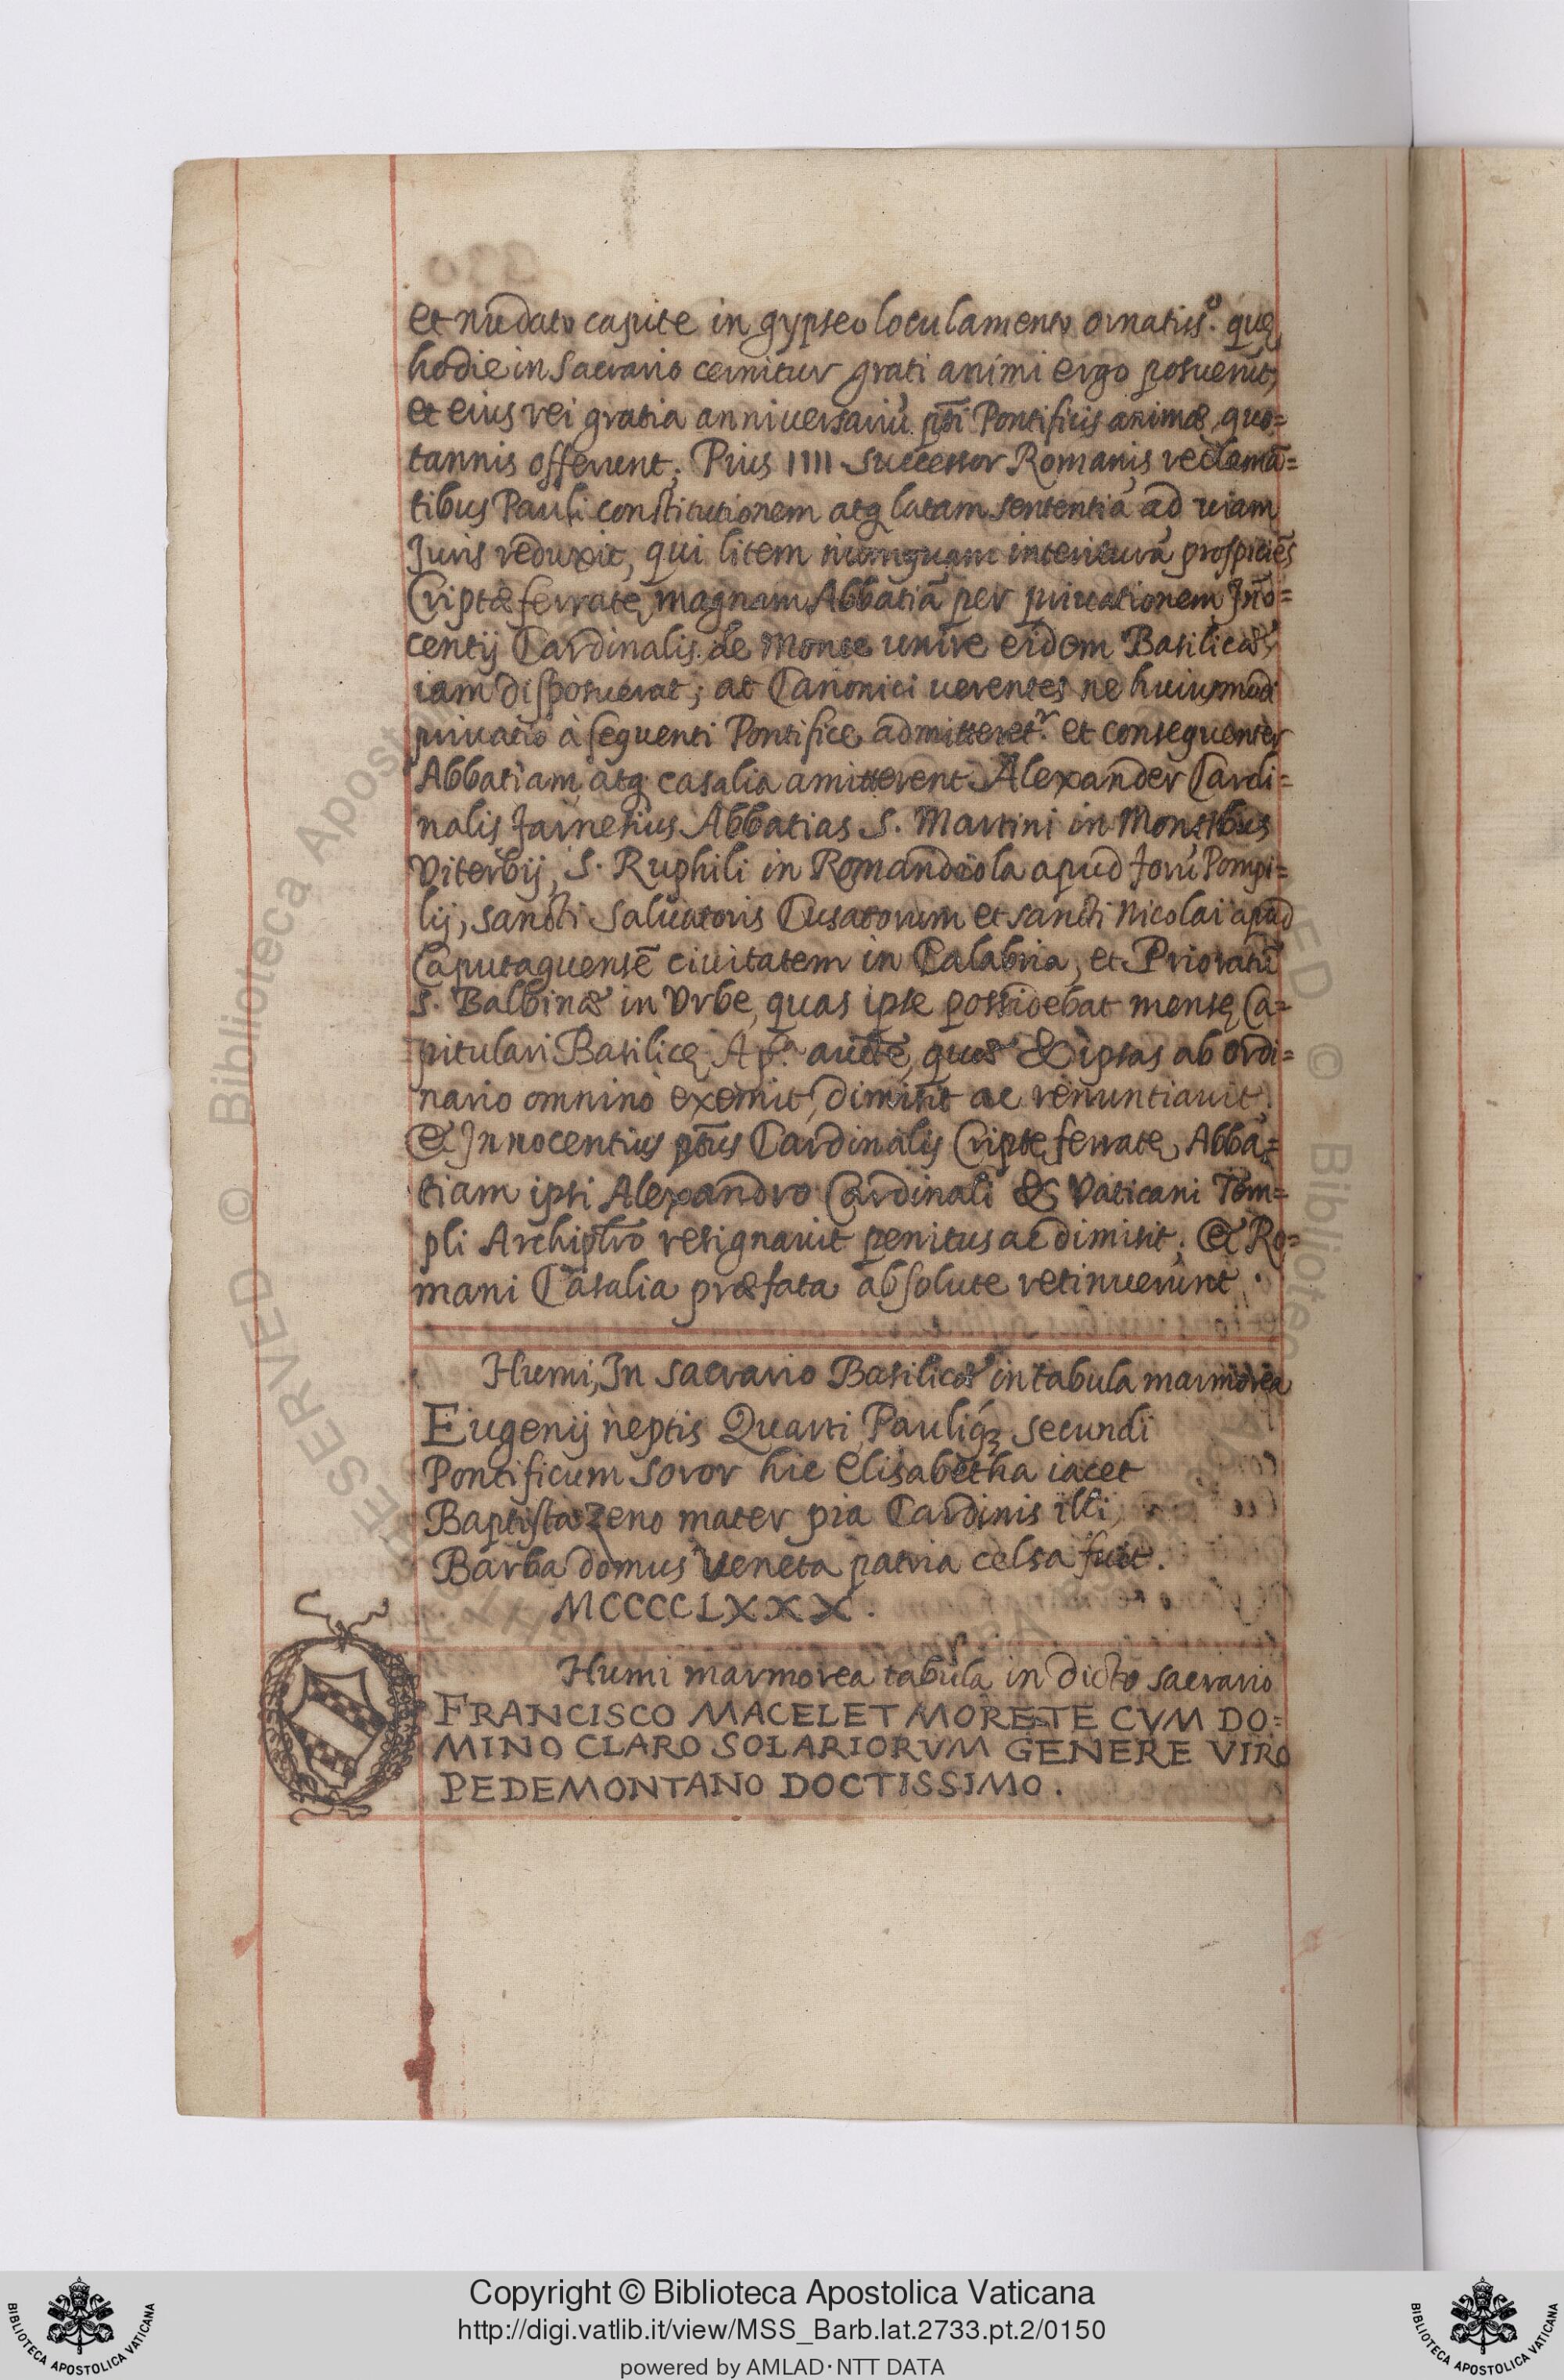 et nudato capite in gypseo loculamento ornatiss.º quę
hodie in Sacrario cernitur grati animi ergo posuerūt,
et eius rei gratia anniuersariū pñti Pontificis animæ quo=
tannis offerunt; Pius IIII Successor Romanis reclamā=
tibus Pauli constitutionem atq latam sententiā ad uiam
Juris reduxit, qui litem nunquam interiturā prospiciēs
Criptæferratę magnam Abbatiā per priuationem Jnno=
centij Cardinalis de Monte unire eidem Basilicæ
iam disposuerat; at Canonici uerentes ne huiusmodi
priuatio à sequenti Pontifice admitteret.r et consequenter
Abbatiam atq casalia amitterent Alexander Cardi=
nalis Farnesius Abbatias S. Martini in Montibus
Viterbij, S. Ruphili in Romandiola apud Forū Pompi=
lij, sancti Saluatoris Cusatorum et sancti Nicolai apud
Caputaquensē ciuitatem in Calabria, et Prioratū
S. Balbinæ in Vrbe, quas ipse possidebat mensę Ca=
pitulari Basilicę Ap.ca aucte, quæ & ipsas ab ordi=
nario omnino exemit, dimisit ac renuntiauit.
& Jnnocentius ptus Cardinalis Criptęferratę Abba=
tiam ipsi Alexandro Cardinali & Vaticani Tem=
pli Archiptro resignauit penitus ac dimisit; & Ro=
mani Casalia præfata absolute retinuerunt.
Humi, Jn sacrario Basilicæ in tabula marmorea
Eugenij neptis Quarti, Pauliq3 secundi
Pontificum Soror hic Elisabetha iacet
Baptista Zeno mater pia Cardinis illi,
Barba domus Veneta patria celsa fuit.
MCCCCLXXX.
Humi marmorea tabula in dicto sacrario
FRANCISCO MACELET MORETE CVM DO=
MINO CLARO SOLARIORVM GENERE VIRO
PEDEMONTANO DOCTISSIMO.
Copyright © Biblioteca Apostolica Vaticana
http://digi.vatlib.it/view/MSS_Barb.lat.2733.pt.2/0150
powered by AMLAD·NTT DATA